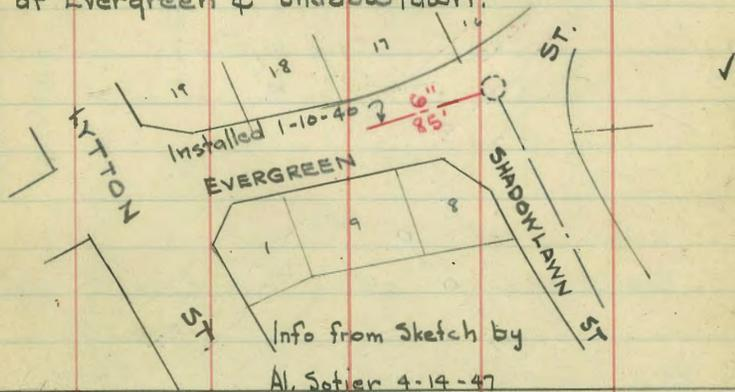 at Evergreen & Shadowlawn.
16
17
18
19
ST.
6"
85'
Installed 1-10-40
EVERGREEN
LYTTON
SHADOWLAWN
1
9
8
ST.
ST
Info from Sketch by
Al. Sotier 4-14-47